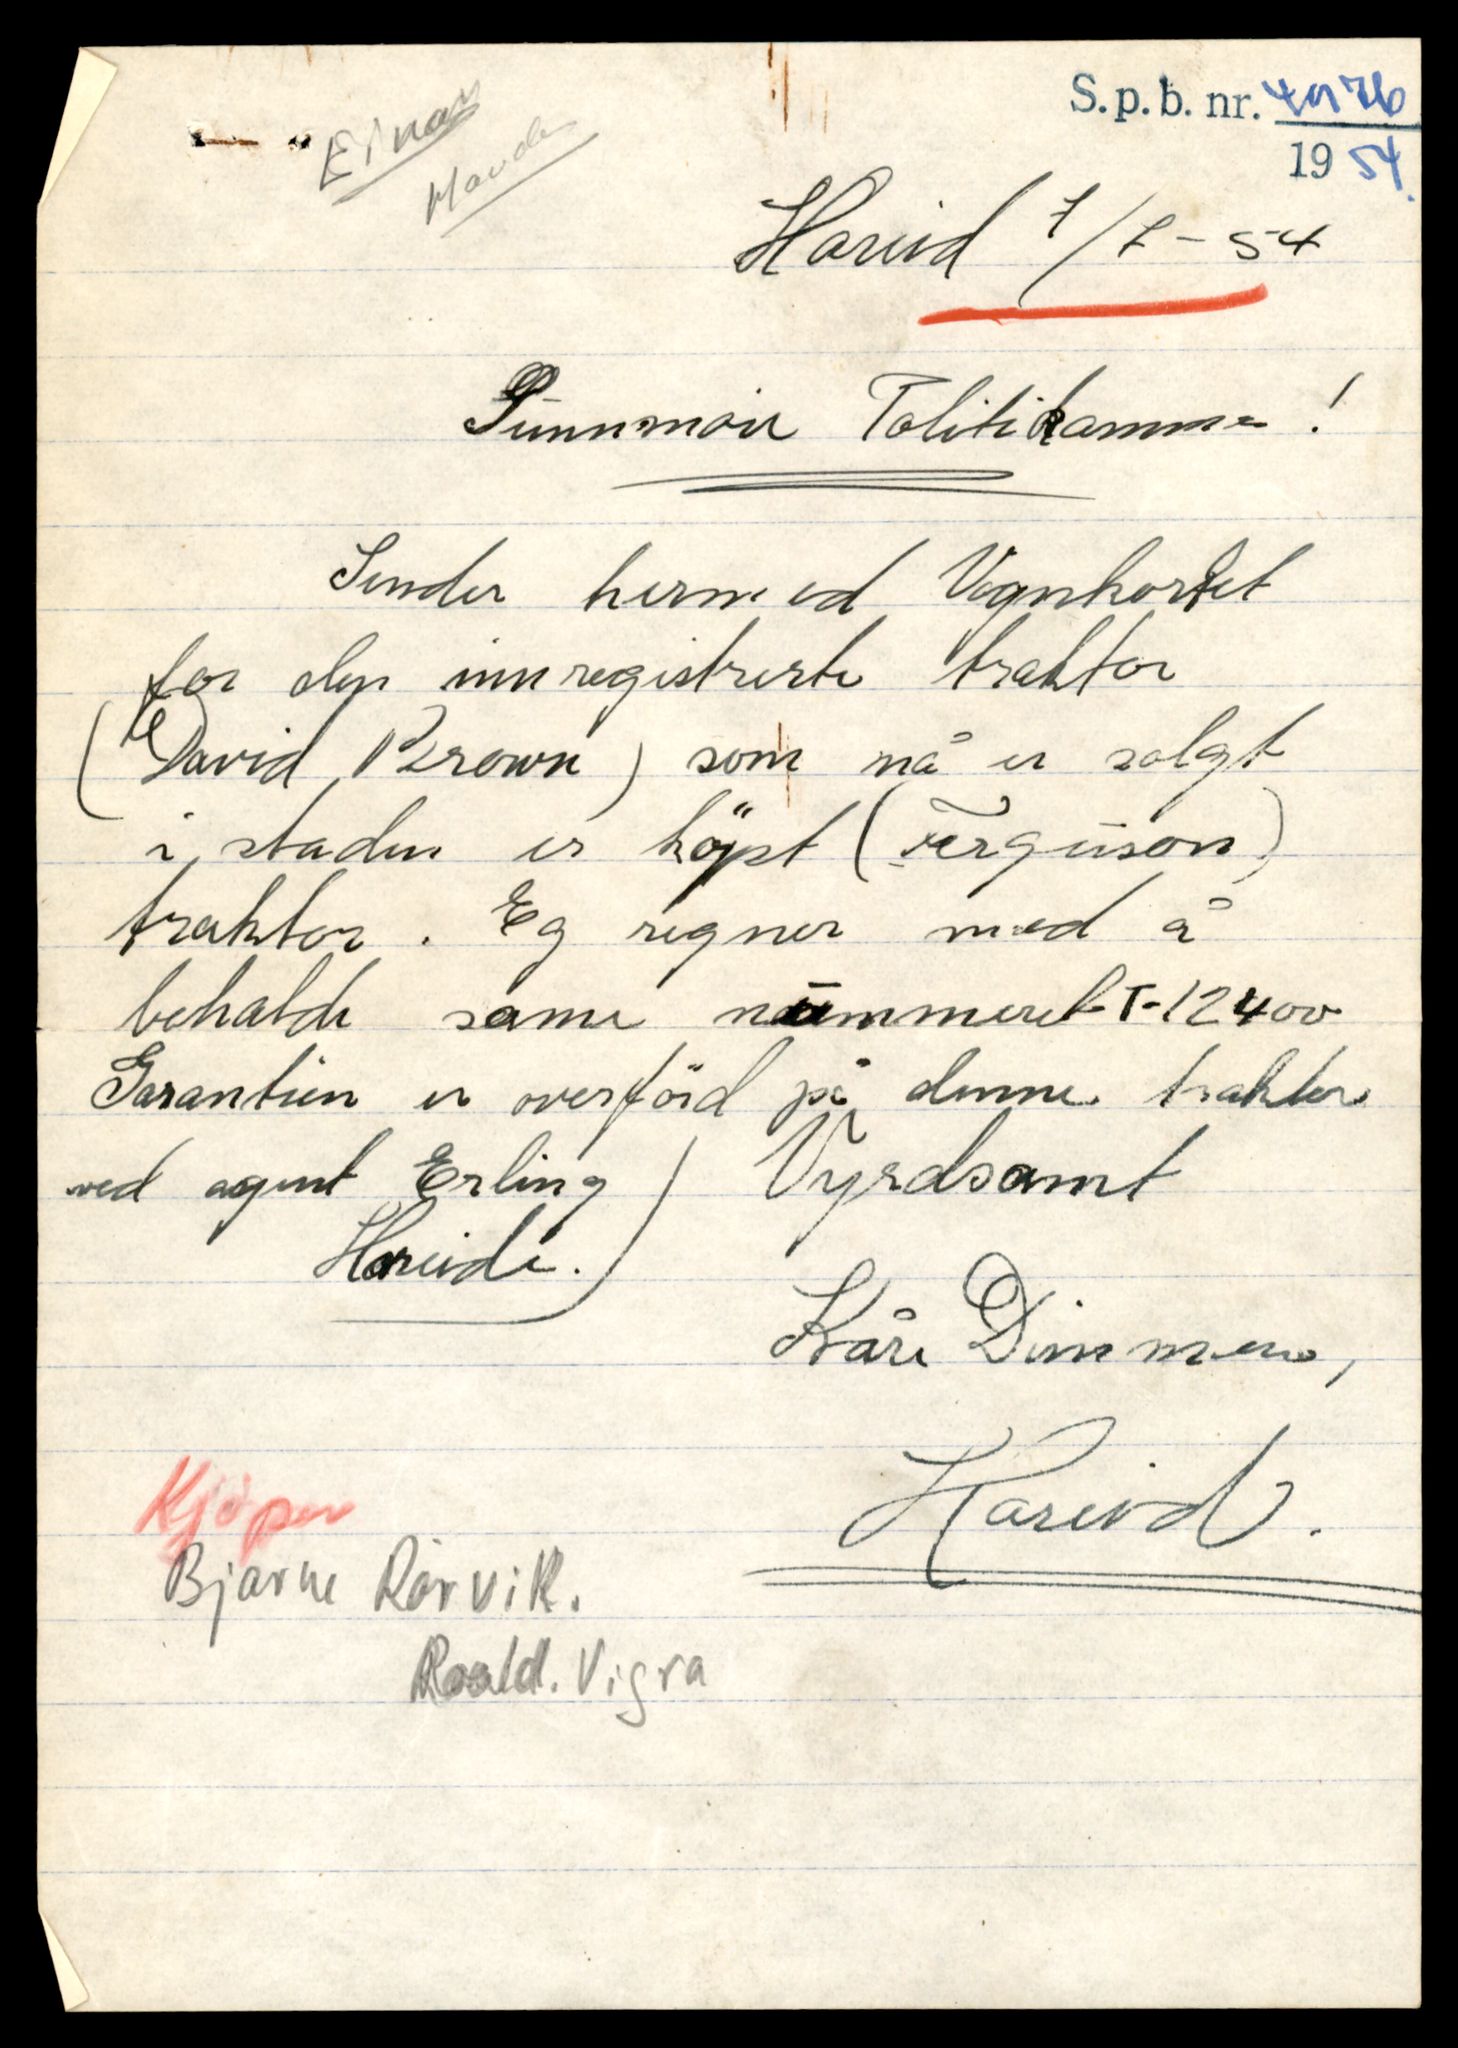 S.p.b. nr. 4976
1954.
Einar
Hareid 7/7-54
Sunnmör Politikammer!
Sender hermed Vognkortet
for den innregistrerte traktor
(David Brown) som nå er solgt
i staden er köpt (Ferguson)
traktor. Eg regner med å
behalde same nummeret T-12400
Garantien er overförd på denne traktor
ved agent Erling
Hareide.)
Vyrdsamt
Kåre Dimmen,
Hareid.
Kjöper
Bjarne Rörvik.
Roald. Vigra